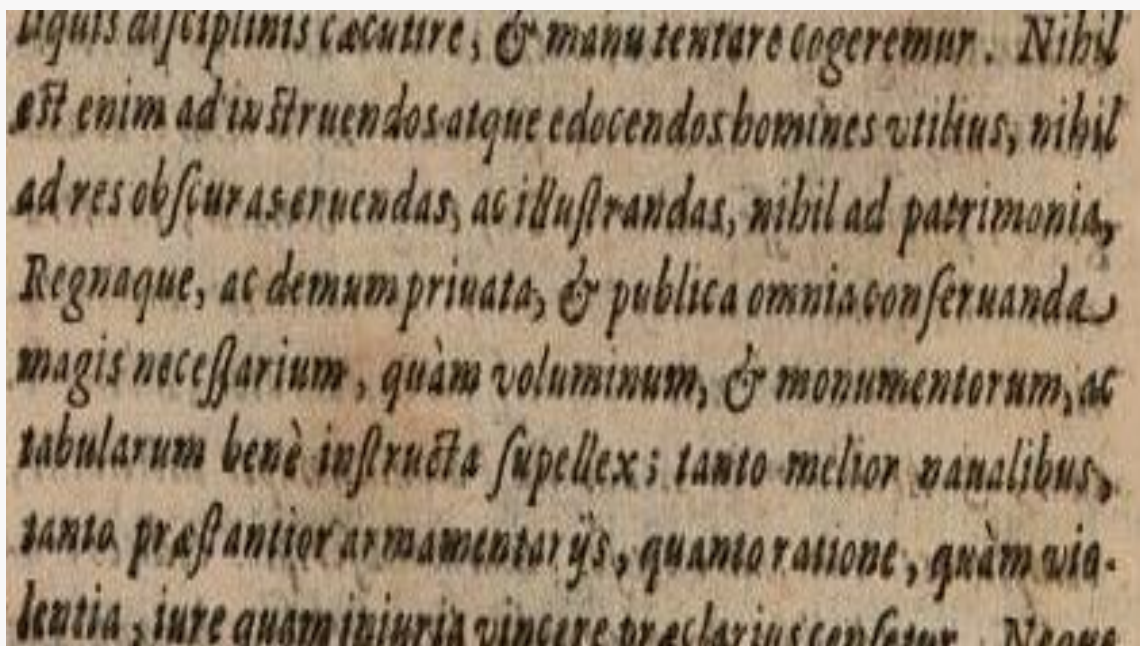 liquis disciplinis cæcutire, & manu tentare cogeremur. Nihil
est enim ad instruendos atque edocendos homines vtilius, nihil
ad res obscuras eruendas, ac illustrandas, nihil ad patrimonia,
Regnaque, ac demum priuata, & publica omnia conseruanda
magis necessarium, quàm voluminum, & monumentorum, ac
tabularum benè instructa supellex; tanto melior naualibus,
tanto præstantior armamentarijs, quanto ratione, quàm vio-
lentia, iure quam iniuria vincere præclarius censetur. Neque